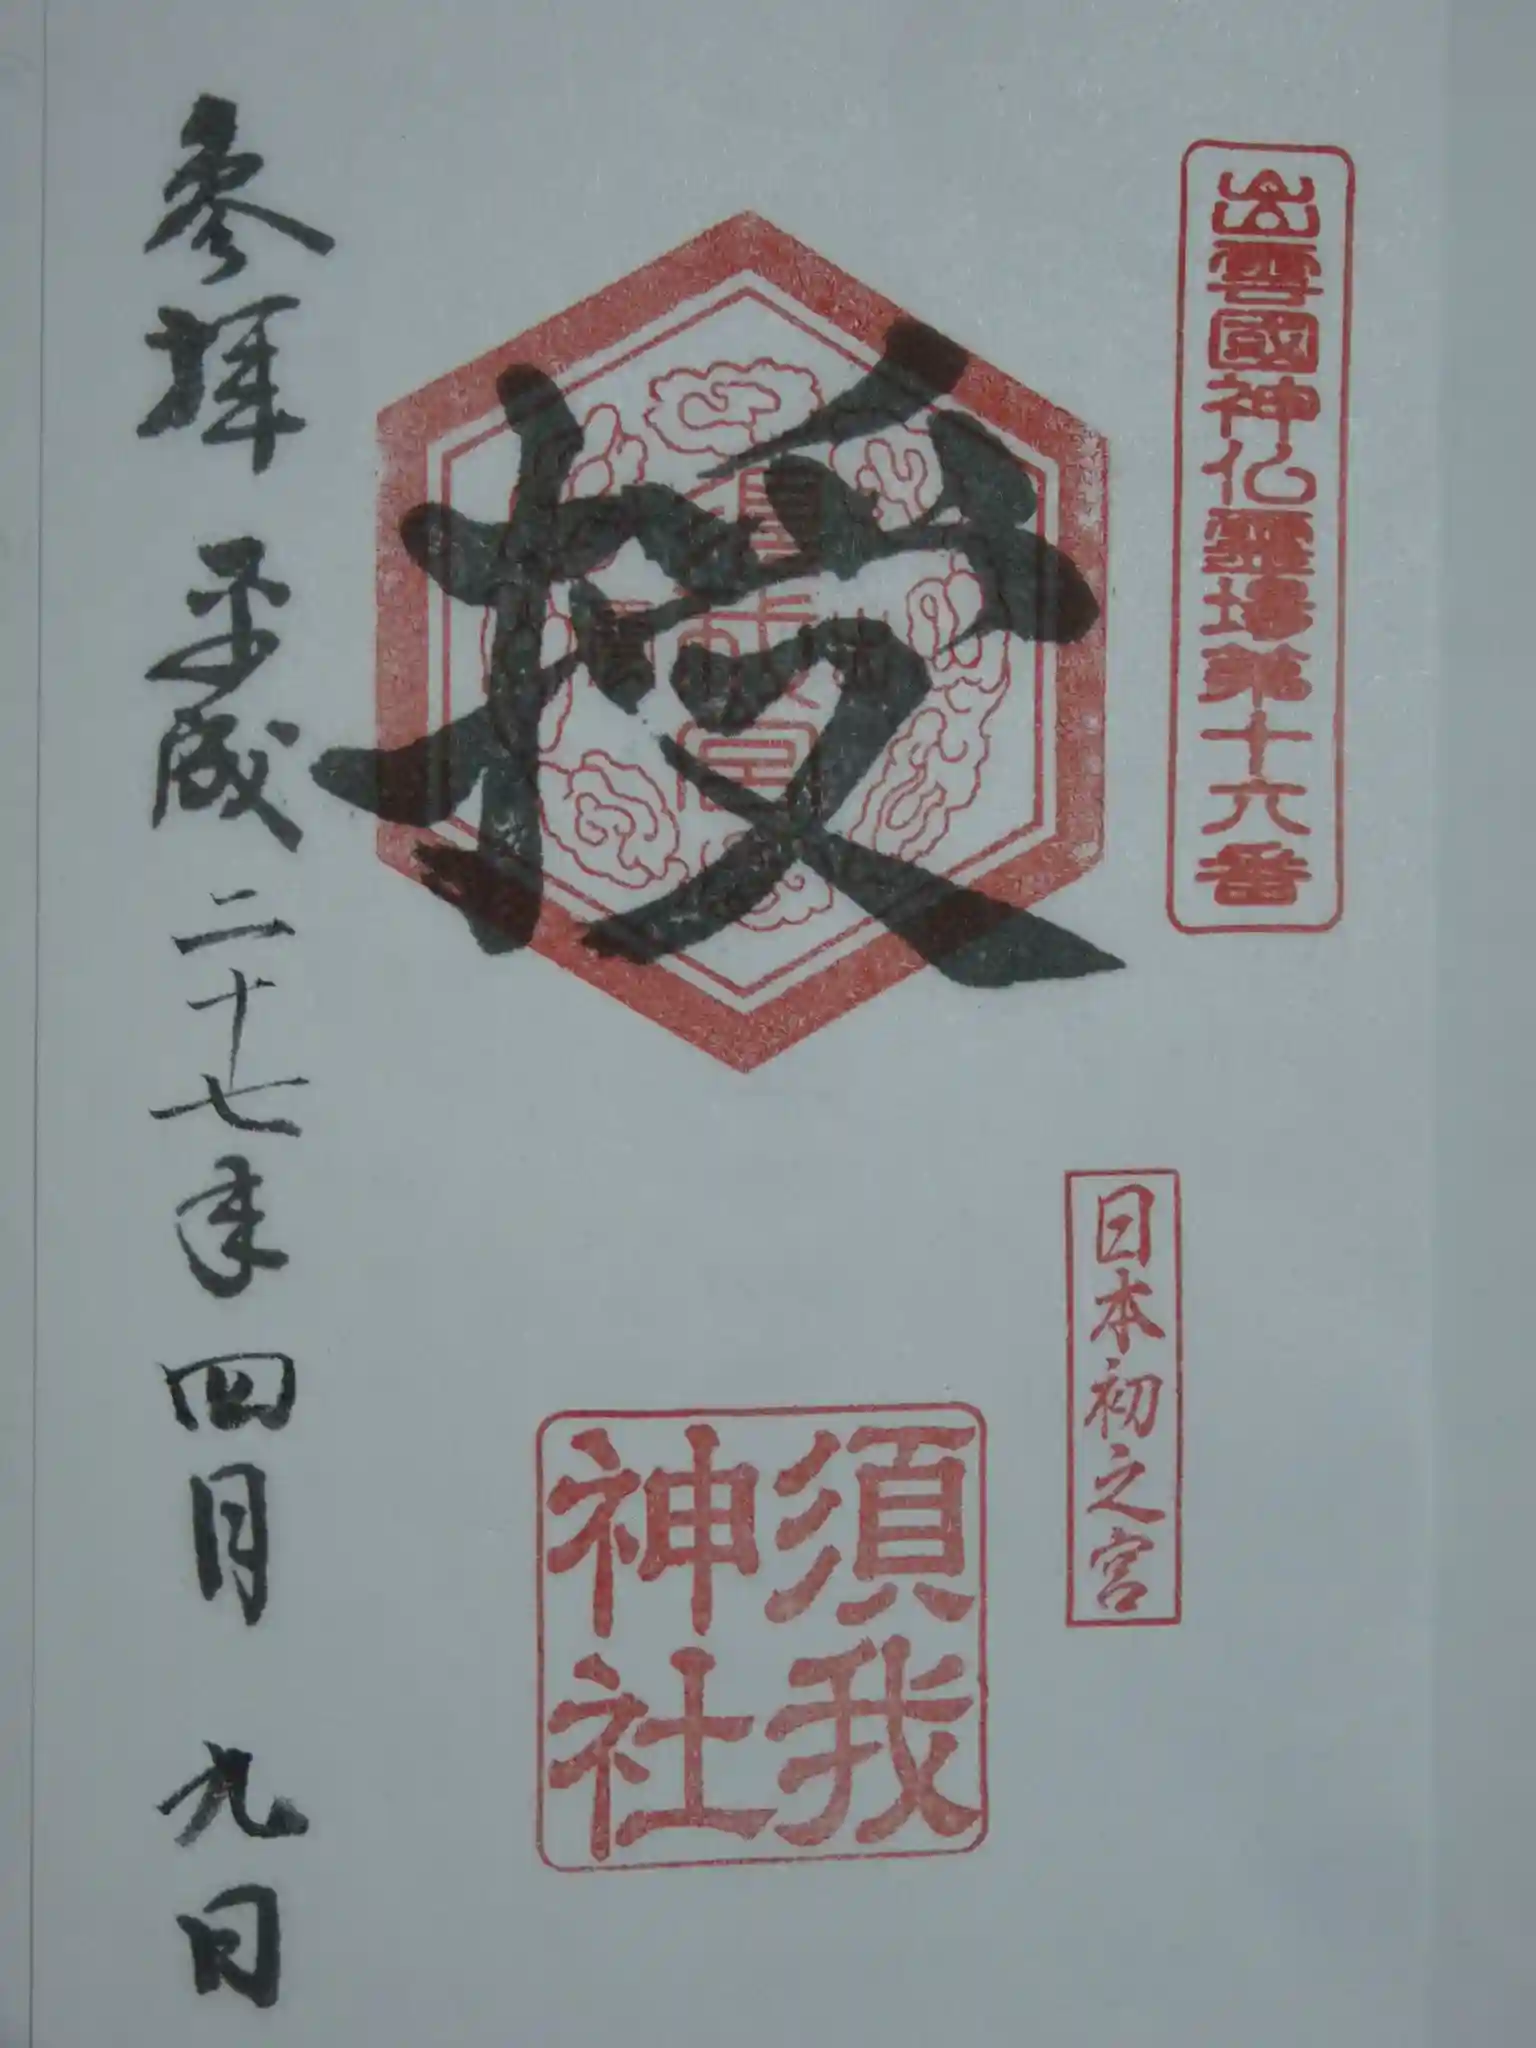 出雲國神仏霊場第十六番
日本初之宮
授
須我
神社
参拝 平成二十七年四月九日